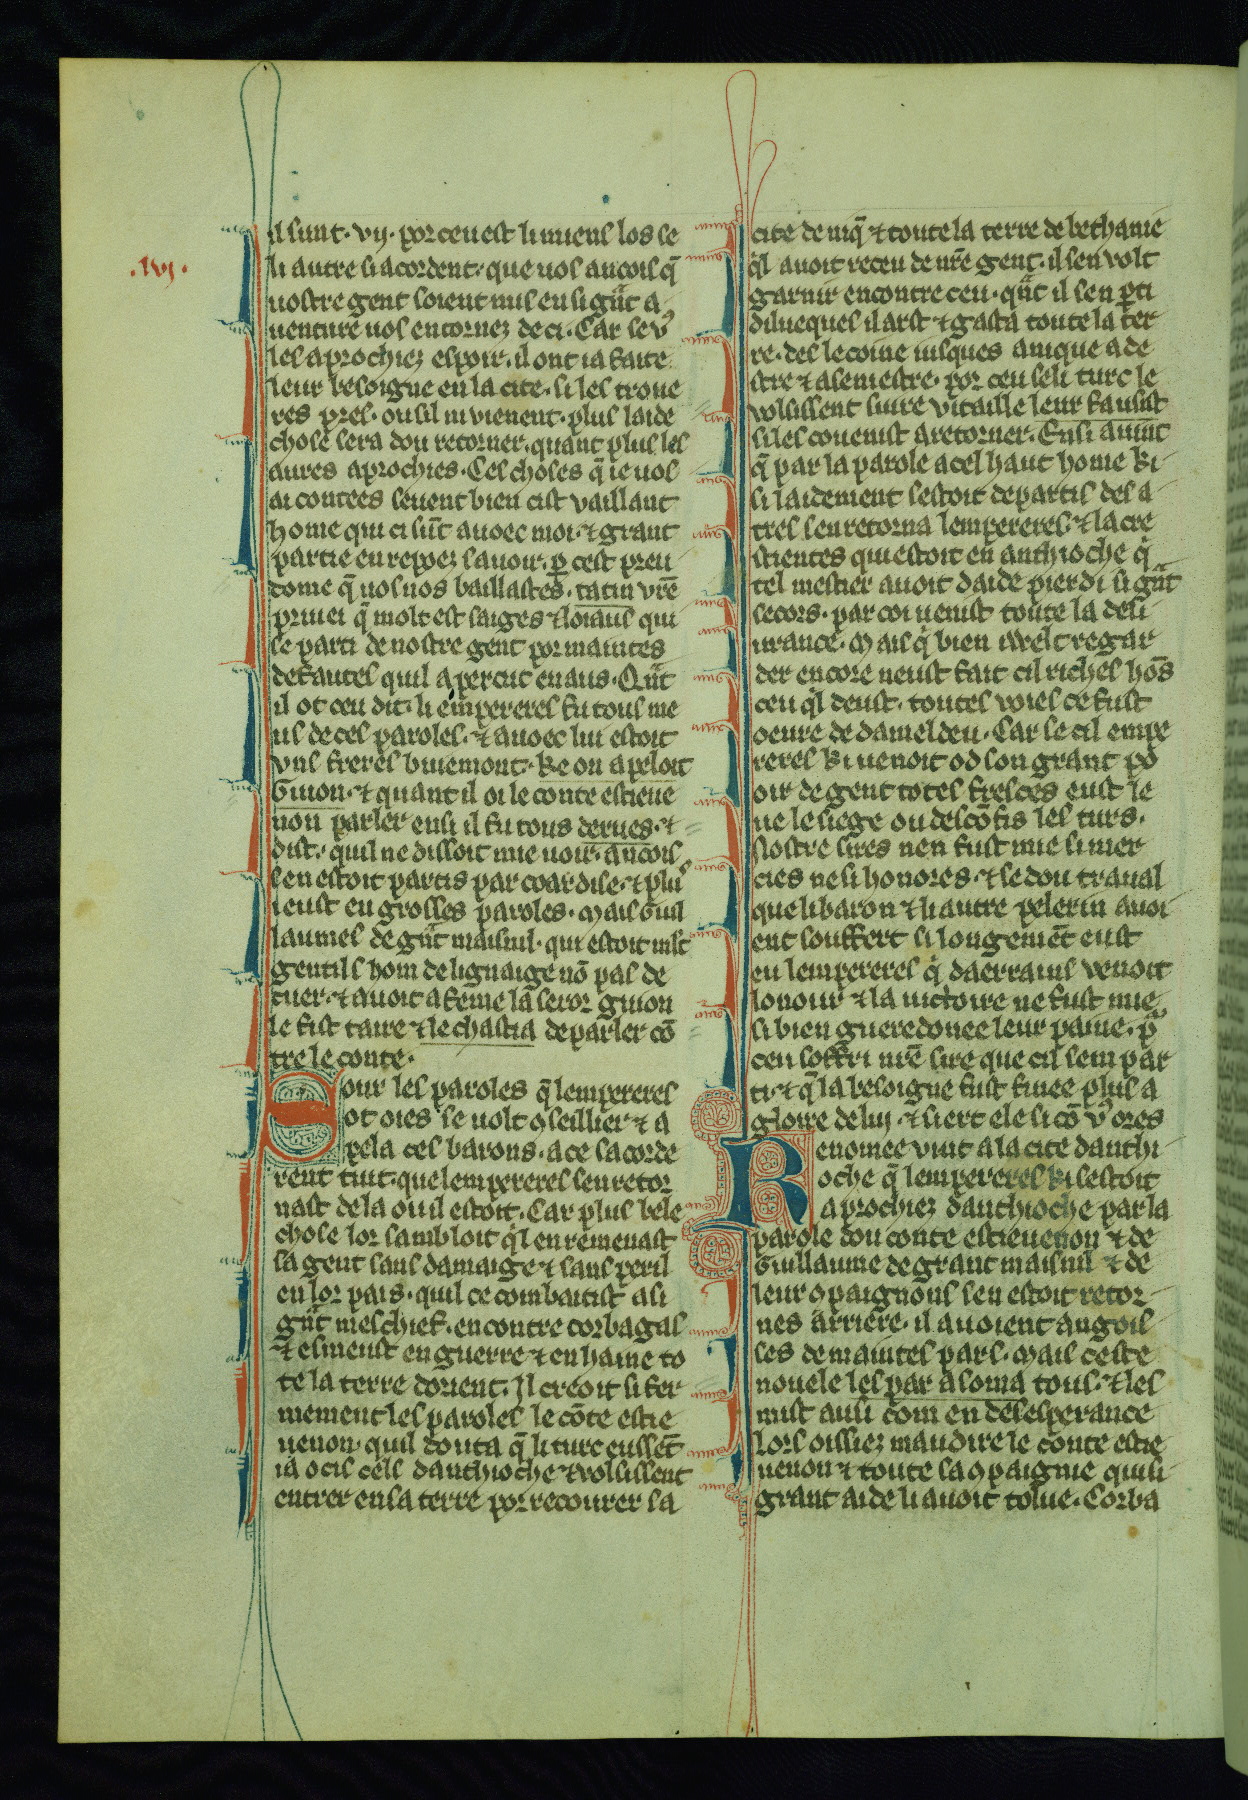 .lvj.
il sunt· vij· por ceu est li miens los se
li autre si acordent· que uos ancois q̃
uostre gent soient mis en si gñt a
uenture uos en tornez de ci· Car se vͦ
les aprochiez espoir· il ont ia faite
leur besoigne en la cite· si les troue
res pres· ou sil ni vienent· plus laide
chose sera dou retorner· quant plus les
aures aprochies· Ces choses q̃ ie uos
ai contees seuent bien cist vaillant
home qui ci sũt auoec moi· ⁊ grant
partie en repoez sauoir· ꝑ cest preu
dome q̃ uos nos baillastes· tatin vrẽ
priuei q̃ molt est saiges ⁊ loiaus qui
se parti de nostre gent por maintes
defautes quil apercut en aus· Qñt
il ot ceu dit· li empereres fu tous me
us de ces paroles· ⁊ auoec lui estoit
vns freres buiemont· Ke on apeloit
Guion· ⁊ quant il oi le conte estieue
non parler ensi il fu tous derues· ⁊
dist· quil ne dissoit mie uoir· ancois
sen estoit partis par coardise· ⁊ plus
i eust eu grosses paroles· Mais Guil
laumes de gñt maisnil· qui estoit mlt
gentils hom de lignaige nõ pas de
cuer· ⁊ auoit a feme la seror guion
le fist taire ⁊ le chastia de parler cõ
tre le conte·
Sour les paroles q̃ lempereres
ot oies se uolt ꝯseillier ⁊ a
pela ces barons· a ce sacorde
rent tuit· que lempereres sen retor
nast de la ou il estoit· Car plus bele
chose lor sambloit q̃l en remenast
sa gent sans damaige ⁊ sans peril
en lor pais· quil ce combatist a si
gñt meschief· encontre corbagas
⁊ esmeust en guerre ⁊ en haine to
te la terre dorient· Il creoit si fer
mement les paroles le cõte estie
uenon· quil douta q̃ li turc eussẽt
ia ocis cels danthioche ⁊ volsissent
entrer en sa terre por recourer la
cite de niq̃ ⁊ toute la terre de bethanie
q̃l auoit receu de nrẽ gent· il sen volt
garnir encontre ceu· qñt il sen ꝑti
diluequel il arst ⁊ gasta toute la ter
re· des le coine iusques a nique a de
stre ⁊ a semestre· por ceu se li turc le
volsissent suire vitaille leur fausist
si les couenist a retorner· Ensi auint
q̃ par la parole a cel haut home Ki
si laidement sestoit departis des a
tres sen retorna lempereres· ⁊ la cre
stientes qui estoit en anthioche q̃
tel mestier auoit daide pierdi si gñt
secors· par coi uenist toute la deli
urance· Mais q̃ bien i velt regar
der encore neust fait cil riches hõs
ceu q̃l deust· toutes voies ce fust
oeure de dameldeu· Car se cil empe
reres Ki uenoit od son grant po
oir de gent totes fresces eust le
ue le siege ou descõfis les turs·
Nostre sires nen fust mie si mer
cies ne si honores· ⁊ se dou traual
que li baron ⁊ li autre pelerin auoi
ent souffert si longemẽt eust
eu lempereres q̃ daerrains venoit
lonour ⁊ la uictoire ne fust mie
si bien gueredonee leur paine· pͦ
ceu soffri nrẽ sire que cil sem par
ti· ⁊ q̃ la besoigne fust finee plus a
gloire de lui· ⁊ siert ele si cõ vͦ ores
Renomee vint a la cite danthi
oche q̃ lempereres Ki sestoit
aprochiez danthioche par la
parole dou conte estieuenon ⁊ de
Guillaume de grant maisnil ⁊ de
leur ꝯpaignons sen estoit retor
nes arriere· il auoient angois
ses de maintes pars· Mais ceste
nouele les par asoma tous· ⁊ les
mist ausi com en desesperance
Lors oissiez maudire le conte estie
uenon ⁊ toute sa ꝯpaignie qui si
grant aide li auoit tolue· Corba